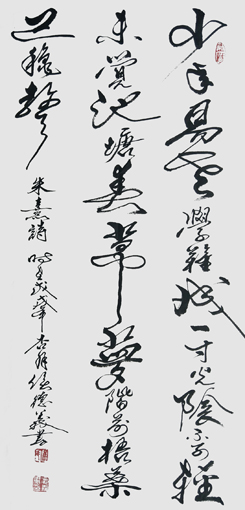 少年易老學難成一寸光陰不可輕
未覺池塘春草夢階前梧葉
已秋聲
朱熹詩 杏月 德義書